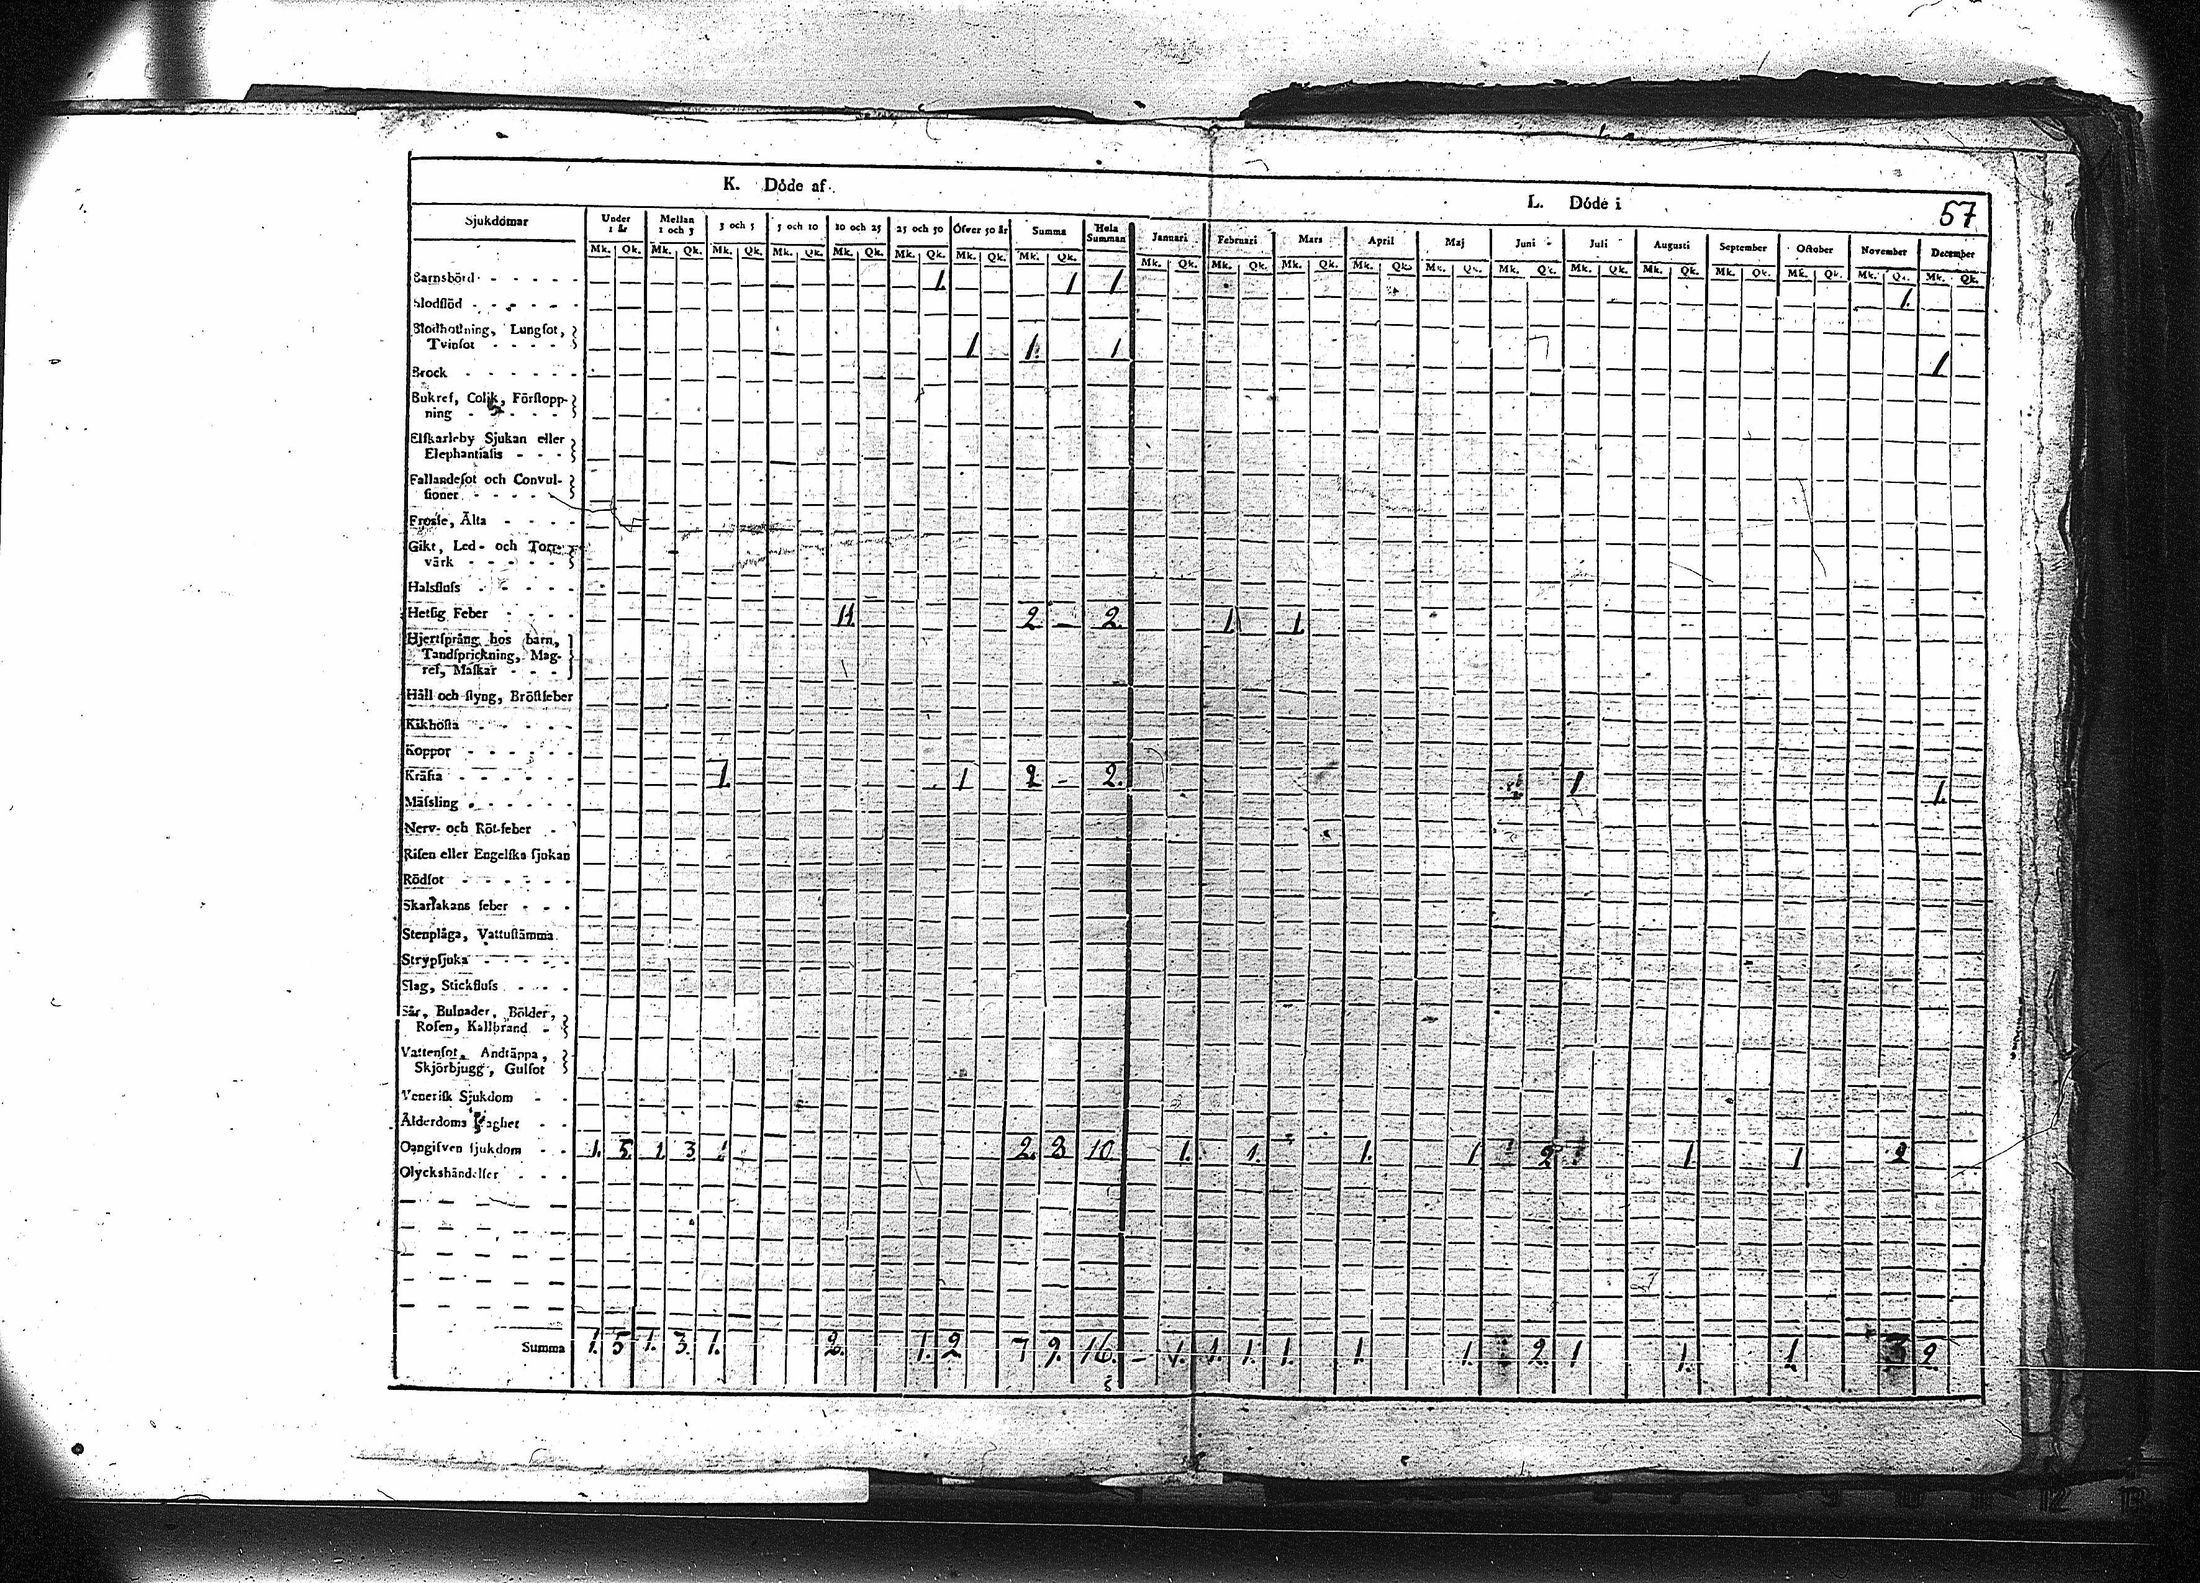 K. Döde af
L. Döde i
57
Sjukdomar Under 1 år Mellan 1 och 3 3 och 5 5 och 10 10 och 25 25 och 50 Öfver 50 år Summa Hela Summan Januari Februari Mars April Maj Juni Juli Augusti September October November December
Mk. Qk. Mk. Qk. Mk. Qk. Mk. Qk. Mk. Qk. Mk. Qk. Mk. Qk. Mk. Qk. Mk. Qk. Mk. Qk. Mk. Qk. Mk. Qk. Mk. Qk. Mk. Qk. Mk. Qk. Mk. Qk. Mk. Qk. Mk. Qk. Mk. Qk. Mk. Qk.
Barnsbörd 1. 1 1 1.
Blodflöd
Blodhostning, Lungsot,
Tvinsot 1 1. 1 1
Brock
Bukref, Colik, Förstopp-
ning
Elfkarleby Sjukan eller
Elephantiasis
Fallandesot och Convul-
sioner
Frossa, Älta
Gikt, Led- och Torr-
värk
Halsfluss
Hetsig Feber 11. 2 — 2. 1. 1.
Hjertsprång hos barn,
Tandsprickning, Mag-
ref, Maskar
Håll och styng, Bröstfeber
Kikhosta
Koppor
Kräfta 1. 1 2 - 2. 1 1.
Mässling
Nerv- och Röt-feber
Risen eller Engelska sjukan
Rödsot
Skarlakans feber
Stenplåga, Vattustämma
Strypsjuka
Slag, Stickfluss
Sår, Bulnader, Bölder,
Rosen, Kallbrand
Vattensot, Andtäppa,
Skjörbjugg, Gulsot
Venerisk Sjukdom
Ålderdoms
Oangifven sjukdom 1. 5 1. 3 1. 2. 8 10 1. 1. 1. 1 2 1 1 2
Olyckshändelser
Summa 1. 5 1. 3. 1. 2. 1. 2 7 9. 16. — 1. 1. 1. 1. 1. 1. 2. 1 1. 1 3 2.